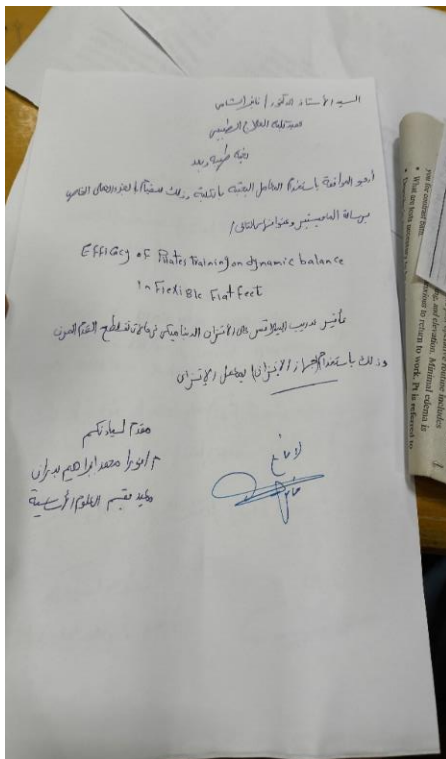 السيد الأستاذ الدكتور / ناصر الشامى
عميد كلية العلاج الطبيعى
تحية طيبة وبعد
أرجو الموافقة باستخدام المعامل البحثية بالكلية وذلك الخاص
برسالة الماجستير وعنوانها كالتالى /
Efficacy of Pilates Training on dynamic balance
in Flexible Flat feet
تأثير تدريب البيلاتس على الإتزان الديناميكى فى تفلطح القدم المرن
وذلك باستخدام (جهاز الإتزان) بمعمل الإتزان
مقدم لسيادتكم
لا مانع
م / نورا محمد ابراهيم
معيد بقسم العلوم الأساسية
you for contrast baths
routine includes
and elevation. Minimal edema is
to return to work. Pt is referred to
• What are tests